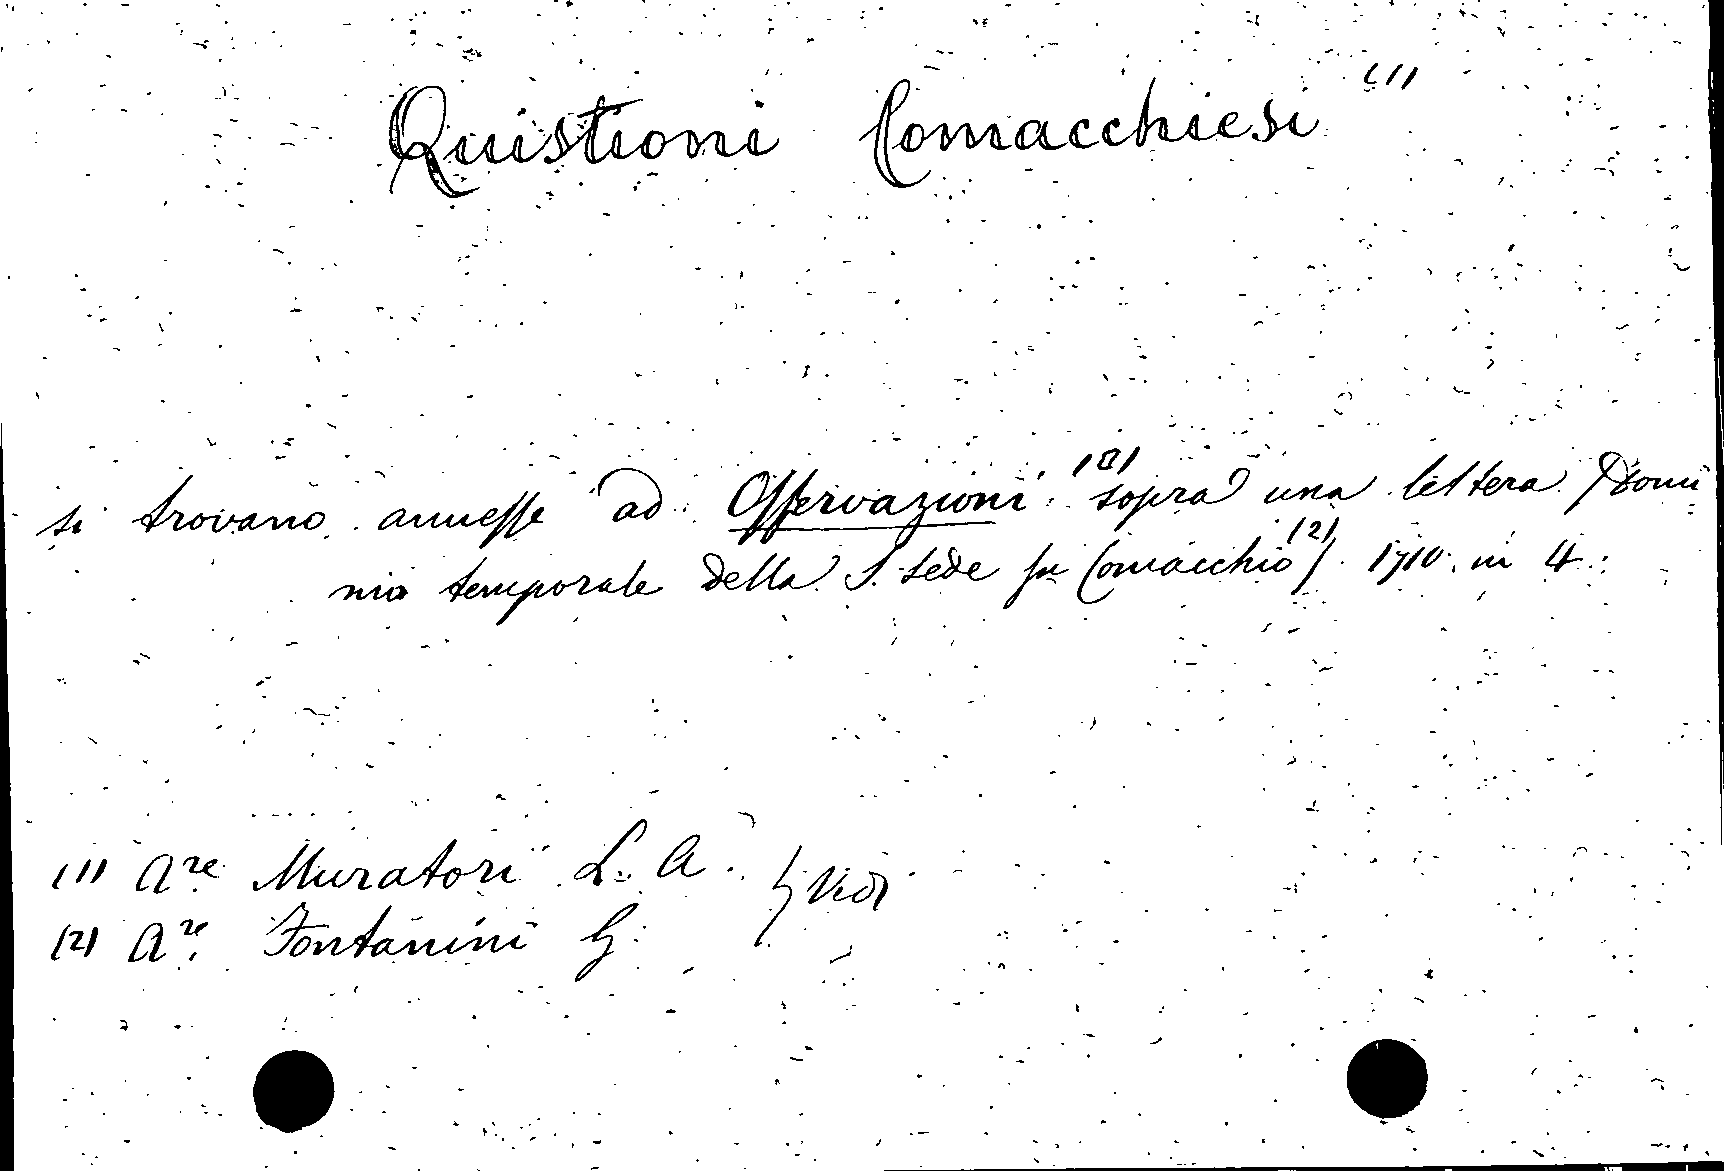 Quistioni Comacchiesi (1)
si trovano annesse ad Osservazioni (1) sopra una lettera (Domi
nio temporale della S. Sede su Comacchio (2)) 1710. in 4.
(1) Are Muratori L. A. } Vedi
(2) Are Fontanini G.